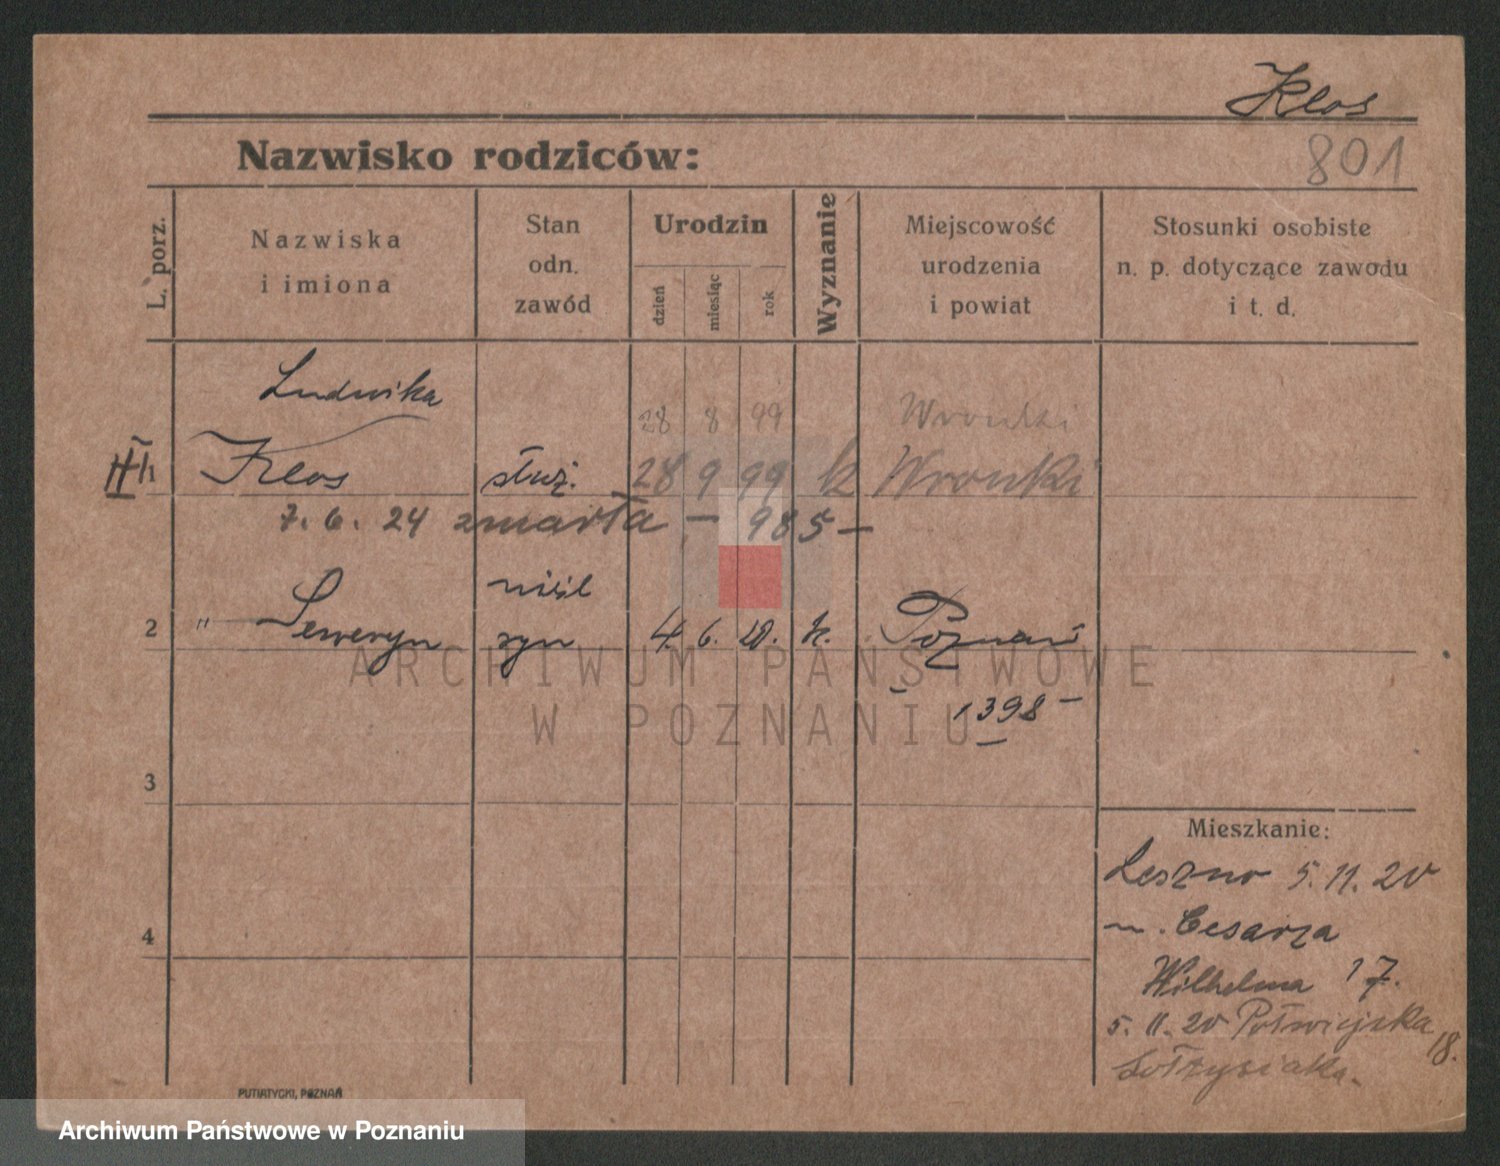 Klos
Nazwisko rodziców:
801
L. porz.
Nazwiska
i imiona
Stan
odn.
zawód
Urodzin
dzień
miesiąc
rok
Wyznanie
Miejscowość
urodzenia
i powiat
Stosunki osobiste
n. p. dotyczące zawodu
i t. d.
Ludwika
28 8 99 Wronki
1 Klos służ. 28 9 99 k Wronki
7. 6. 24 zmarła – 985 –
nieśl
2 " Seweryn syn 4. 6. 20. k. Poznań
– 1398 –
3
4
Mieszkanie:
Leszno 5. 11. 20
Cesarza
Wilhelma 17.
5. 11. 20 Półwiejska 18.
ARCHIWUM PAŃSTWOWE
W POZNANIU
PUTIATYCKI, POZNAŃ
Archiwum Państwowe w Poznaniu